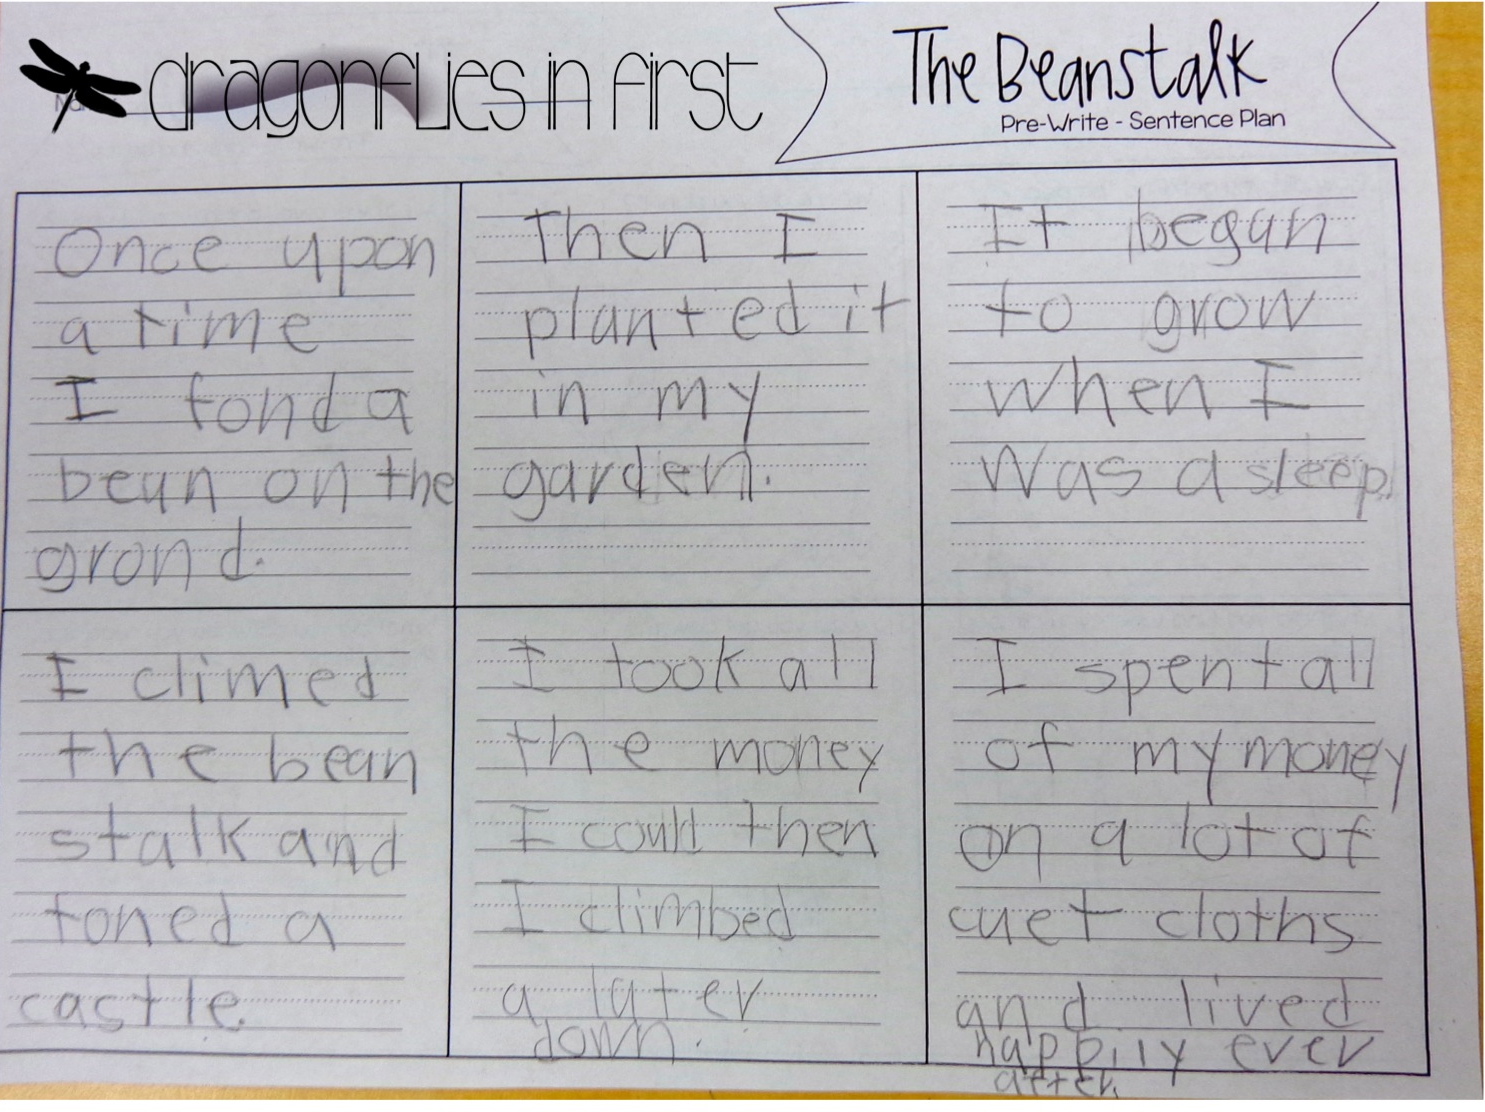 dragonflies in first
The Beanstalk
Pre-Write - Sentence Plan
Once upon
a time
I fond a
bean on the
grond.
Then I
planted it
in my
garden.
It began
to grow
when I
was asleep.
I climed
the bean
stalk and
foned a
castle.
I took all
the money
I could then
I climbed
a later
down.
I spent all
of my money
on a lot of
cuet cloths
and lived
happily ever
after.